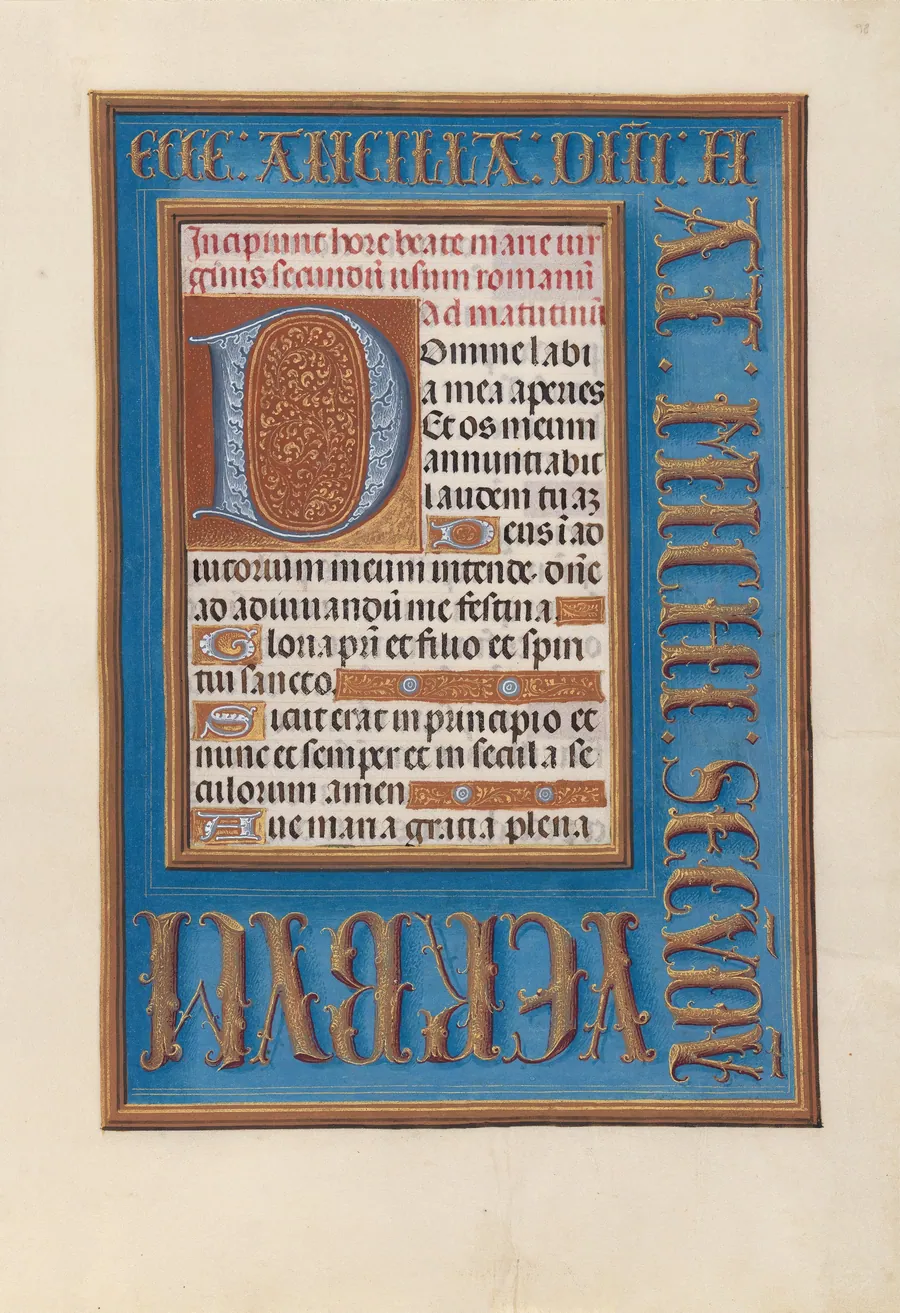 ECCE: ANCILLA: DÑI: FI
AT. MICHI. SECVND̄V
VERBVM
Incipiunt hore beate marie uir
ginis secundū usum romanū
Ad matutinū
Domine labi
a mea aperies
Et os meum
annuntiabit
laudem tuaz
Deus ī ad
iutorium meum intende. dn̄e
ad adiuuandū me festina.
Gloria pr̄i et filio et spiri
tui sancto.
Sicut erat in principio et
nunc et semper et in secula se
culorum amen
Aue maria gratia plena